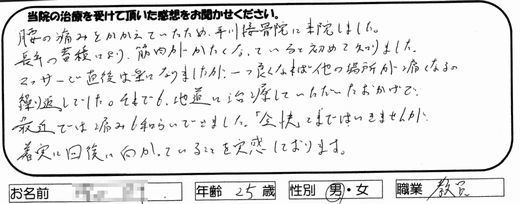 当院の治療を受けて頂いた感想をお聞かせください。
腰の痛みをかかえていたため、平川接骨院に来院しました。
長年の蓄積により、筋肉がかたくなっていると初めて知りました。
マッサージ直後は楽になりましたが、一つ良くなれば他の場所が痛くなるの
繰り返しでした。それでも、地道に治療していただいたおかげで、
最近では痛みも和らいできました。「全快」とまではいきませんが、
着実に回復に向かっていることを実感しております。
お名前 年齢 25 歳 性別 男・女 職業 教員